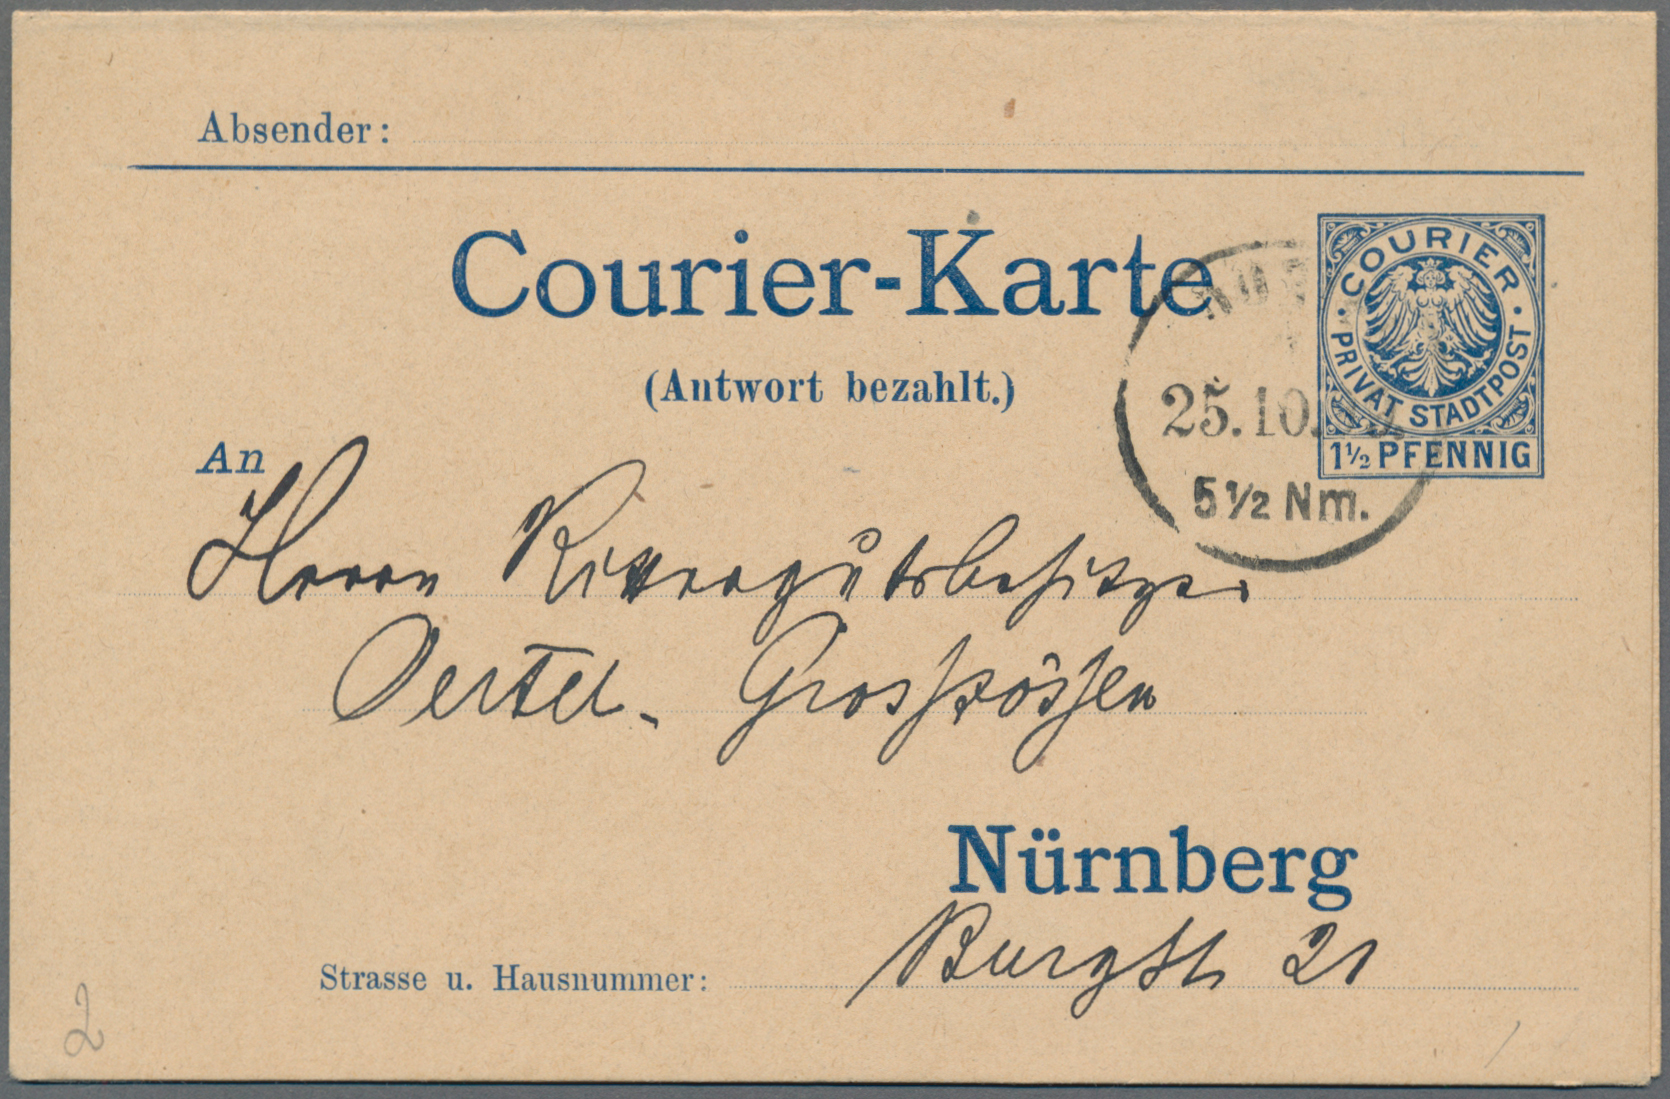 Absender:
Courier-Karte
(Antwort bezahlt.)
COURIER
PRIVAT STADTPOST
1½ PFENNIG
25.10.
5½ Nm.
An
Herrn Rittergutsbesitzer
Oertel.
Nürnberg
Strasse u. Hausnummer: Burgstr 21
2